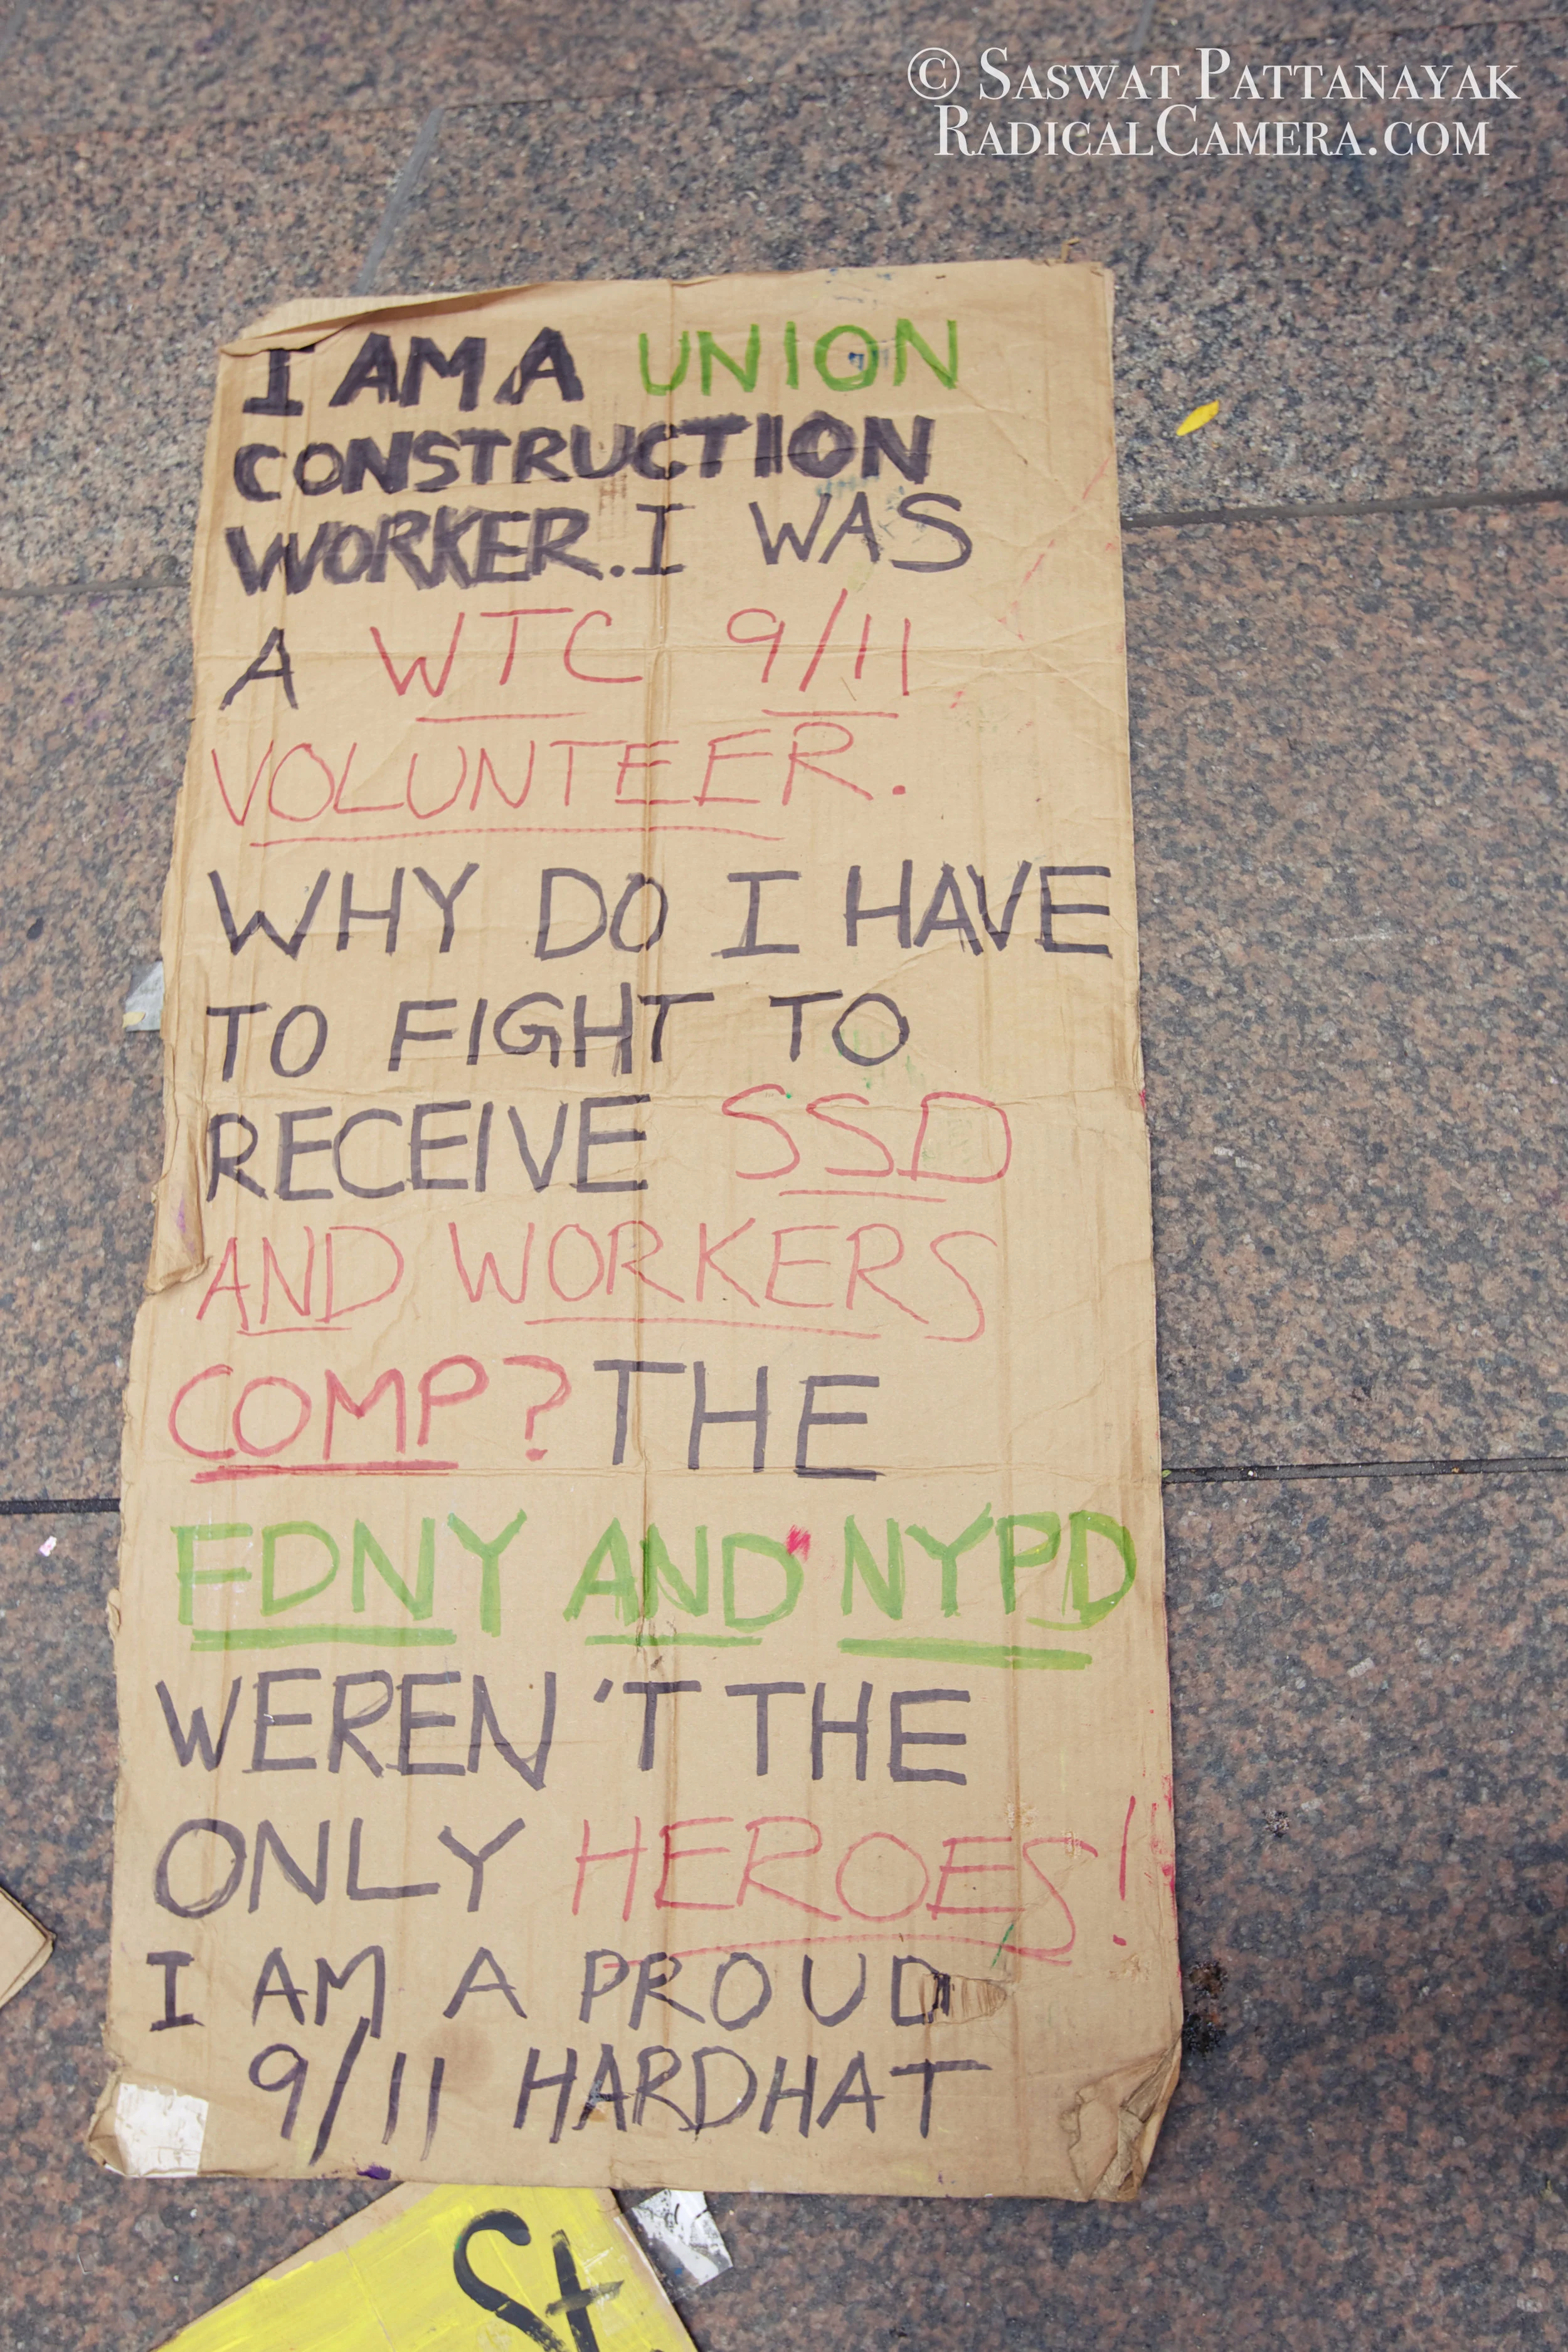 © Saswat Pattanayak
RadicalCamera.com
I AM A UNION
CONSTRUCTION
WORKER. I WAS
A WTC 9/11
VOLUNTEER.
WHY DO I HAVE
TO FIGHT TO
RECEIVE SSD
AND WORKERS
COMP? THE
FDNY AND NYPD
WEREN'T THE
ONLY HEROES!
I AM A PROUD
9/11 HARDHAT
St